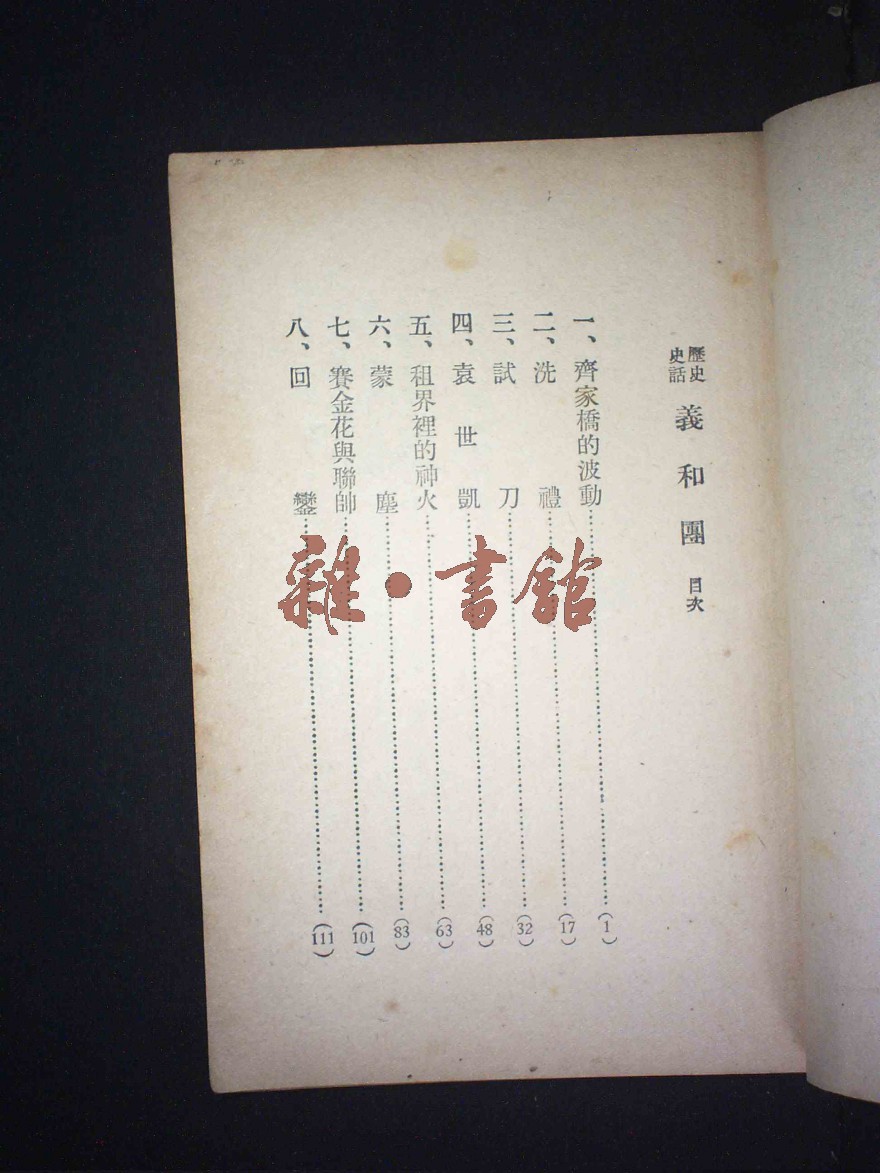 歷史
史話
義和團 目次
一、齊家橋的波動⋯⋯⋯⋯(1)
二、洗禮⋯⋯⋯⋯(17)
三、試刀⋯⋯⋯⋯(32)
四、袁世凱⋯⋯⋯⋯(48)
五、租界裡的神火⋯⋯⋯⋯(63)
六、蒙塵⋯⋯⋯⋯(83)
七、賽金花與聯帥⋯⋯⋯⋯(101)
八、回鑾⋯⋯⋯⋯(111)
雜·書館